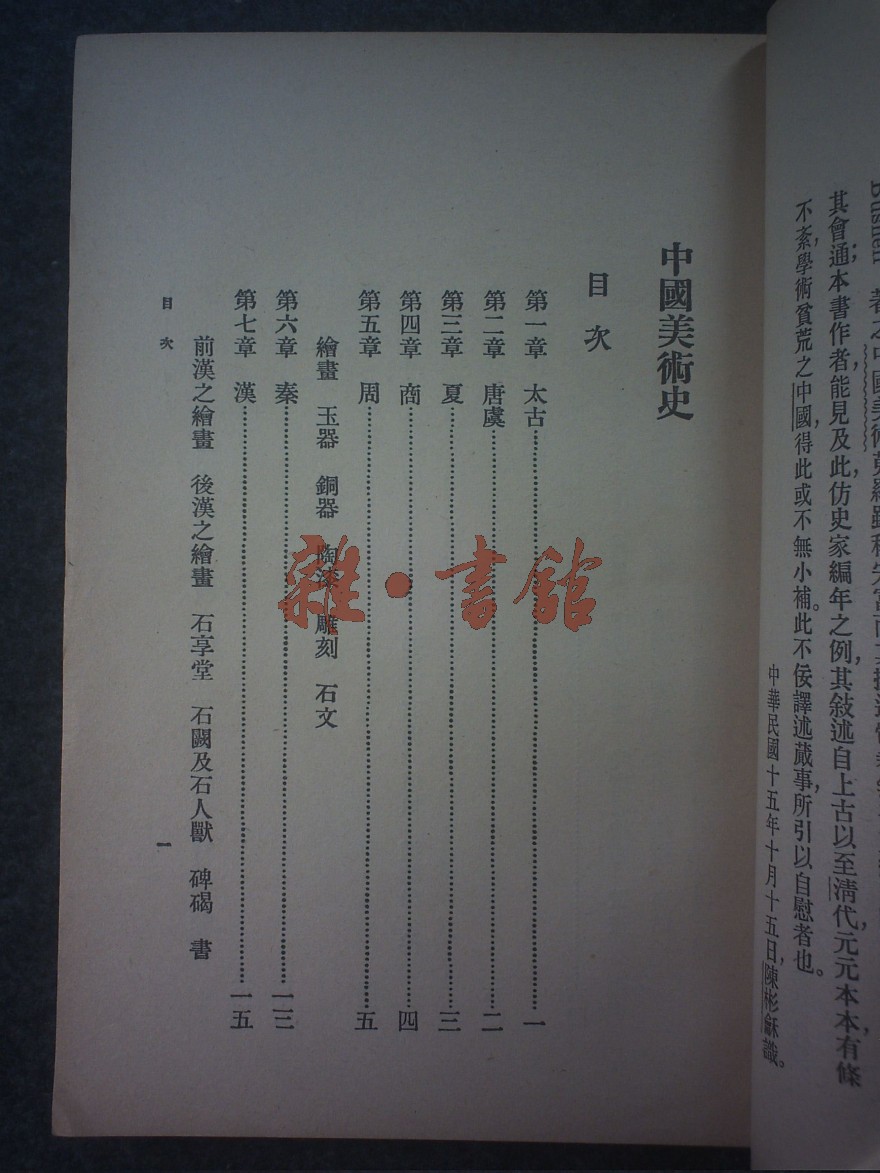 著之中國美術
其會通；本書作者能見及此，仿史家編年之例，其敍述自上古以至淸代，元元本本，有條
不紊，學術貧荒之中國，得此或不無小補。此不佞譯述蕆事，所引以自慰者也。
中華民國十五年十月十五日，陳彬龢識。
中國美術史
目次
第一章　太古……一
第二章　唐虞……二
第三章　夏……三
第四章　商……四
第五章　周……五
繪畫　玉器　銅器　陶漆　雕刻　石文
第六章　秦……一三
第七章　漢……一五
前漢之繪畫　後漢之繪畫　石享堂　石闕及石人獸　碑碣　書
目次　一
雜·書館